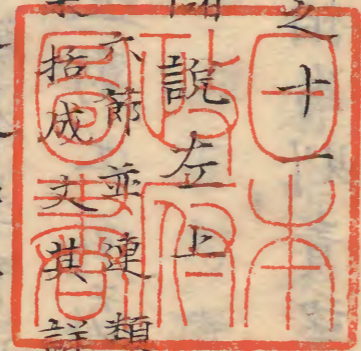 之十一
說左上
六節並連類
括成文其詳
日本
政府
圖書